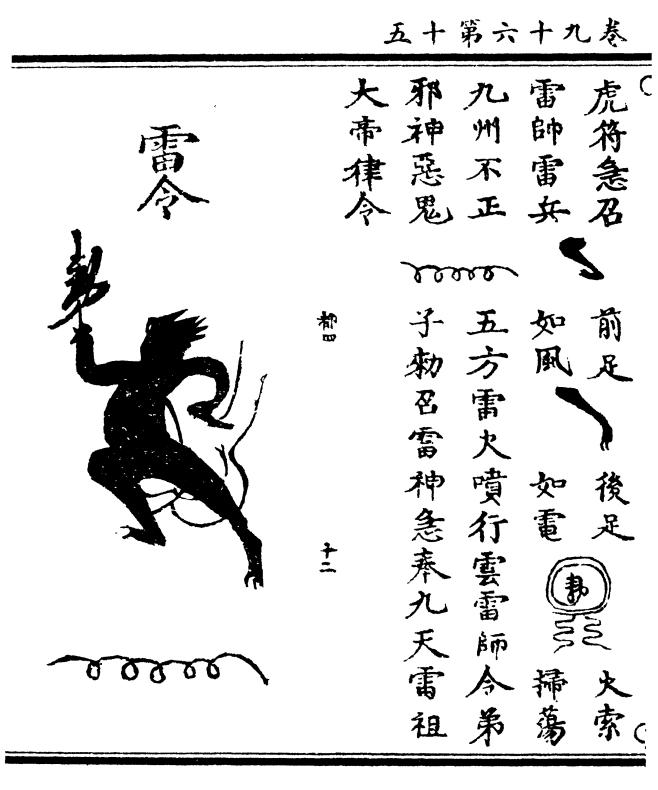 卷九十六第十五
虎符急召 前足 後足 火索
雷帥雷兵 如風 如電 勅 掃蕩
九州不正 五方雷火噴行雲雷師令弟
邪神惡鬼 子勑召雷神急奉九天雷祖
大帝律令
都四 十二
雷令
勅